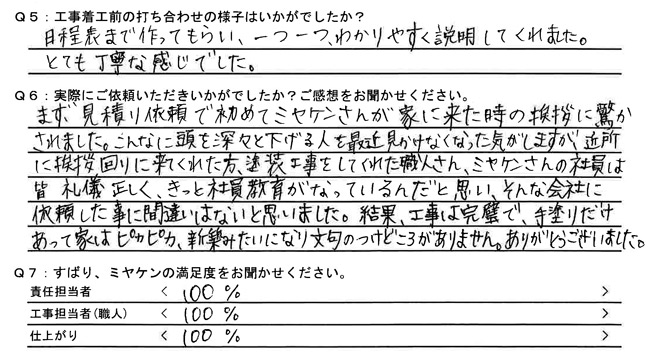 Q5：工事着工前の打ち合わせの様子はいかがでしたか？
日程表まで作ってもらい、一つ一つ、わかりやすく説明してくれました。
とても丁寧な感じでした。
Q6：実際にご依頼いただきいかがでしたか？ご感想をお聞かせください。
まず見積り依頼で初めてミヤケンさんが家に来た時の挨拶に驚か
されました。こんなに頭を深々と下げる人を最近見かけなくなった気がしますが、近所
に挨拶回りに来てくれた方、塗装工事をしてくれた職人さん、ミヤケンさんの社員は
皆礼儀正しく、きっと社員教育がなっているんだと思い、そんな会社に
依頼した事に間違いはないと思いました。結果、工事は完璧で、手塗りだけ
あって家はピカピカ、新築みたいになり文句のつけどころがありません。ありがとうございました。
Q7：ずばり、ミヤケンの満足度をお聞かせください。
責任担当者 < 100 % >
工事担当者(職人) < 100 % >
仕上がり < 100 % >